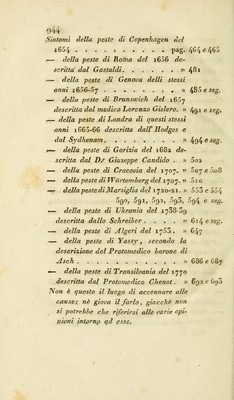 944
Sintomi della peste di Copenhagen del
1654 . . . . . . . . . pag. 464 e 465
— della peste di Roma del 1656 de-
scritta dal Gastaldi . . . . . . » 481
— della peste di Genova delli stessi
anni 1656-57 . . . . . . . » 485 e seg.
— della peste di Brunswich del 1657
descritta dal medico Lorenzo Gislero. » 491 e seg.
— della peste di Londra di questi stessi
anni 1665-66 descritta dall' Hodges e
dal Sydhenam. . . . . . . . » 494 e seg.
— della peste di Gorizia del 1682 de-
scritta dal D.r Giuseppe Candido . » 502
— della peste di Cracovia del 1707. » 507 e 508
— della peste di Wurtemberg del 1707. » 510
— della peste di Marsiglia del 1720-21. » 553 e 554
590, 591, 592, 593, 594 e seg.
— della peste di Ukrania del 1738-39
descritta dallo Schreiber . . . . » 614 e seg.
— della peste di Algeri del 1753. » 647
— della peste di Yassy, secondo la
descrizione del Protomedico barone di
Asch . . . . . . . . . . » 686 e 687
— della peste di Transilvania del 1770
descritta dal Protomedico Chenot. » 692 e 693
Non è questo il luogo di accennare alle
cause; nè giova il farlo, giacchè non
si potrebbe che riferirsi alle varie opi-
nioni intorno ad esse.